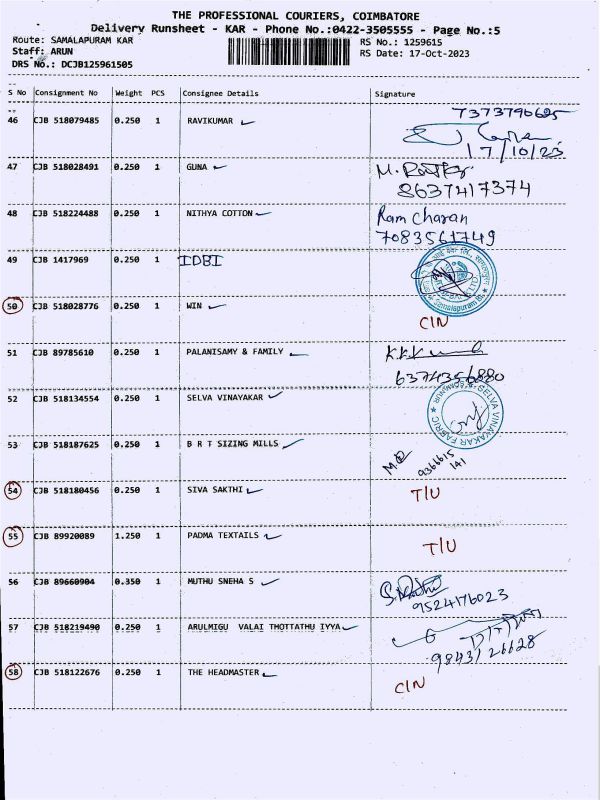 THE PROFESSIONAL COURIERS, COIMBATORE
Delivery Runsheet - KAR - Phone No.:0422-3505555 - Page No.:5
Route: SAMALAPURAM KAR RS No.: 1259615
Staff: ARUN RS Date: 17-Oct-2023
DRS No.: DCJB125961505
S No Consignment No Weight PCS Consignee Details Signature
7373790625
46 CJB 518079485 0.250 1 RAVIKUMAR
17/10/23
47 CJB 518028491 0.250 1 GUNA M.
8637417374
48 CJB 518224488 0.250 1 NITHYA COTTON Ram Charan
7083561749
49 CJB 1417969 0.250 1 IDBI
50 CJB 518028776 0.250 1 WIN
CIN
51 CJB 89785610 0.250 1 PALANISAMY & FAMILY
6374356880
52 CJB 518134554 0.250 1 SELVA VINAYAKAR
SELVA VINAYAKAR FABRIC
53 CJB 518187625 0.250 1 B R T SIZING MILLS
9366615
141
54 CJB 518180456 0.250 1 SIVA SAKTHI T/U
55 CJB 89920089 1.250 1 PADMA TEXTAILS T/U
56 CJB 89660904 0.350 1 MUTHU SNEHA S
9524176023
57 CJB 518219490 0.250 1 ARULMIGU VALAI THOTTATHU IYYA
9843126628
58 CJB 518122676 0.250 1 THE HEADMASTER
CIN